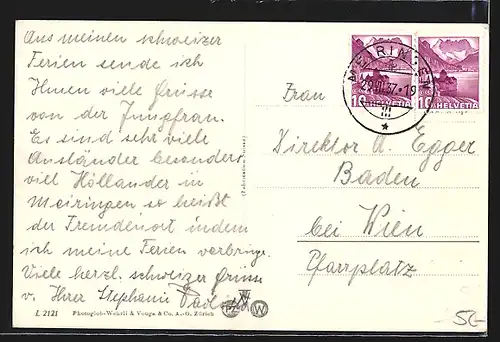 Aus meinen schweizer
Ferien sende ich
Ihnen viele Grüsse
von der Jungfrau.
Es sind sehr viele
Ausländer besonders
viel Holländer in
Meiringen so heißt
der Fremdenort indem
ich meine Ferien verbringe.
Viele herzl. schweizer Grüsse
v. Ihrer Stephanie
L 2121 Photoglob-Wehrli & Vouga & Co. A.-G. Zürich
MEIRINGEN
29.VII.37.19
10 HELVETIA
10 HELVETIA
Frau
Direktor A. Egger
Baden
bei Wien
Pfarrplatz